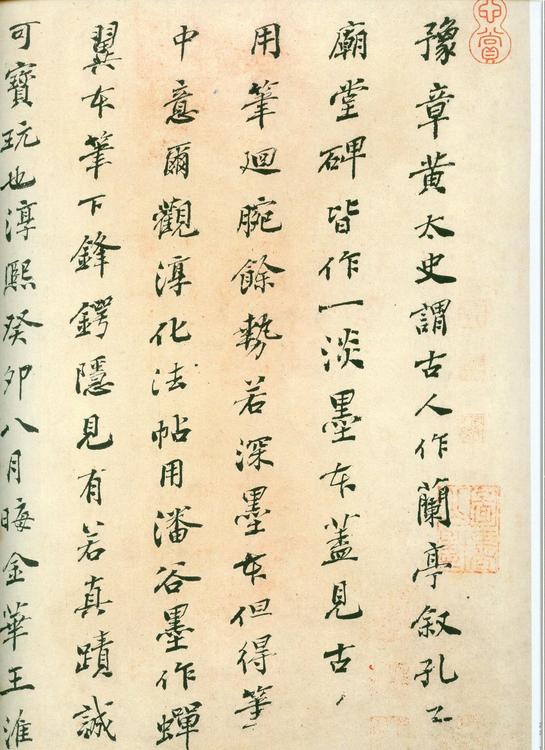 豫章黄太史謂古人作蘭亭叙孔子
廟堂碑皆作一淡墨本蓋見古
用筆廻腕餘勢若深墨本但得筆
中意爾觀淳化法帖用潘谷墨作蟬
翼本筆下鋒鍔隱見有若真蹟誠
可寶玩也淳熙癸卯八月晦金華王淮